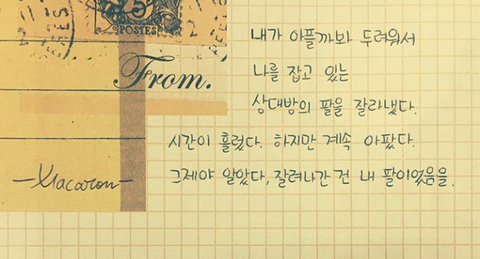 25
POSTES
From.
Macaron
내가 아플까봐 두려워서
나를 잡고 있는
상대방의 팔을 잘라냈다.
시간이 흘렀다. 하지만 계속 아팠다.
그제야 알았다, 잘려나간 건 내 팔이었음을.